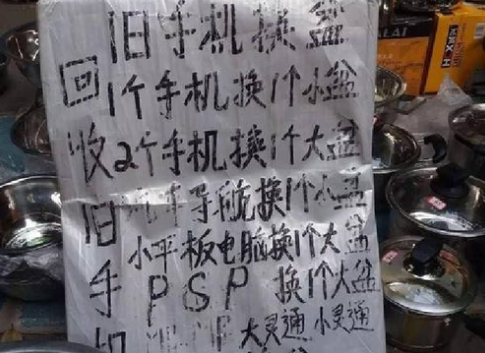 旧手机换盆
回收旧手机
1个手机换1个小盆
2个手机换1个大盆
汽车导航换1个小盆
小平板电脑换1个大盆
PSP 换1个大盆
大灵通 小灵通
ALAI